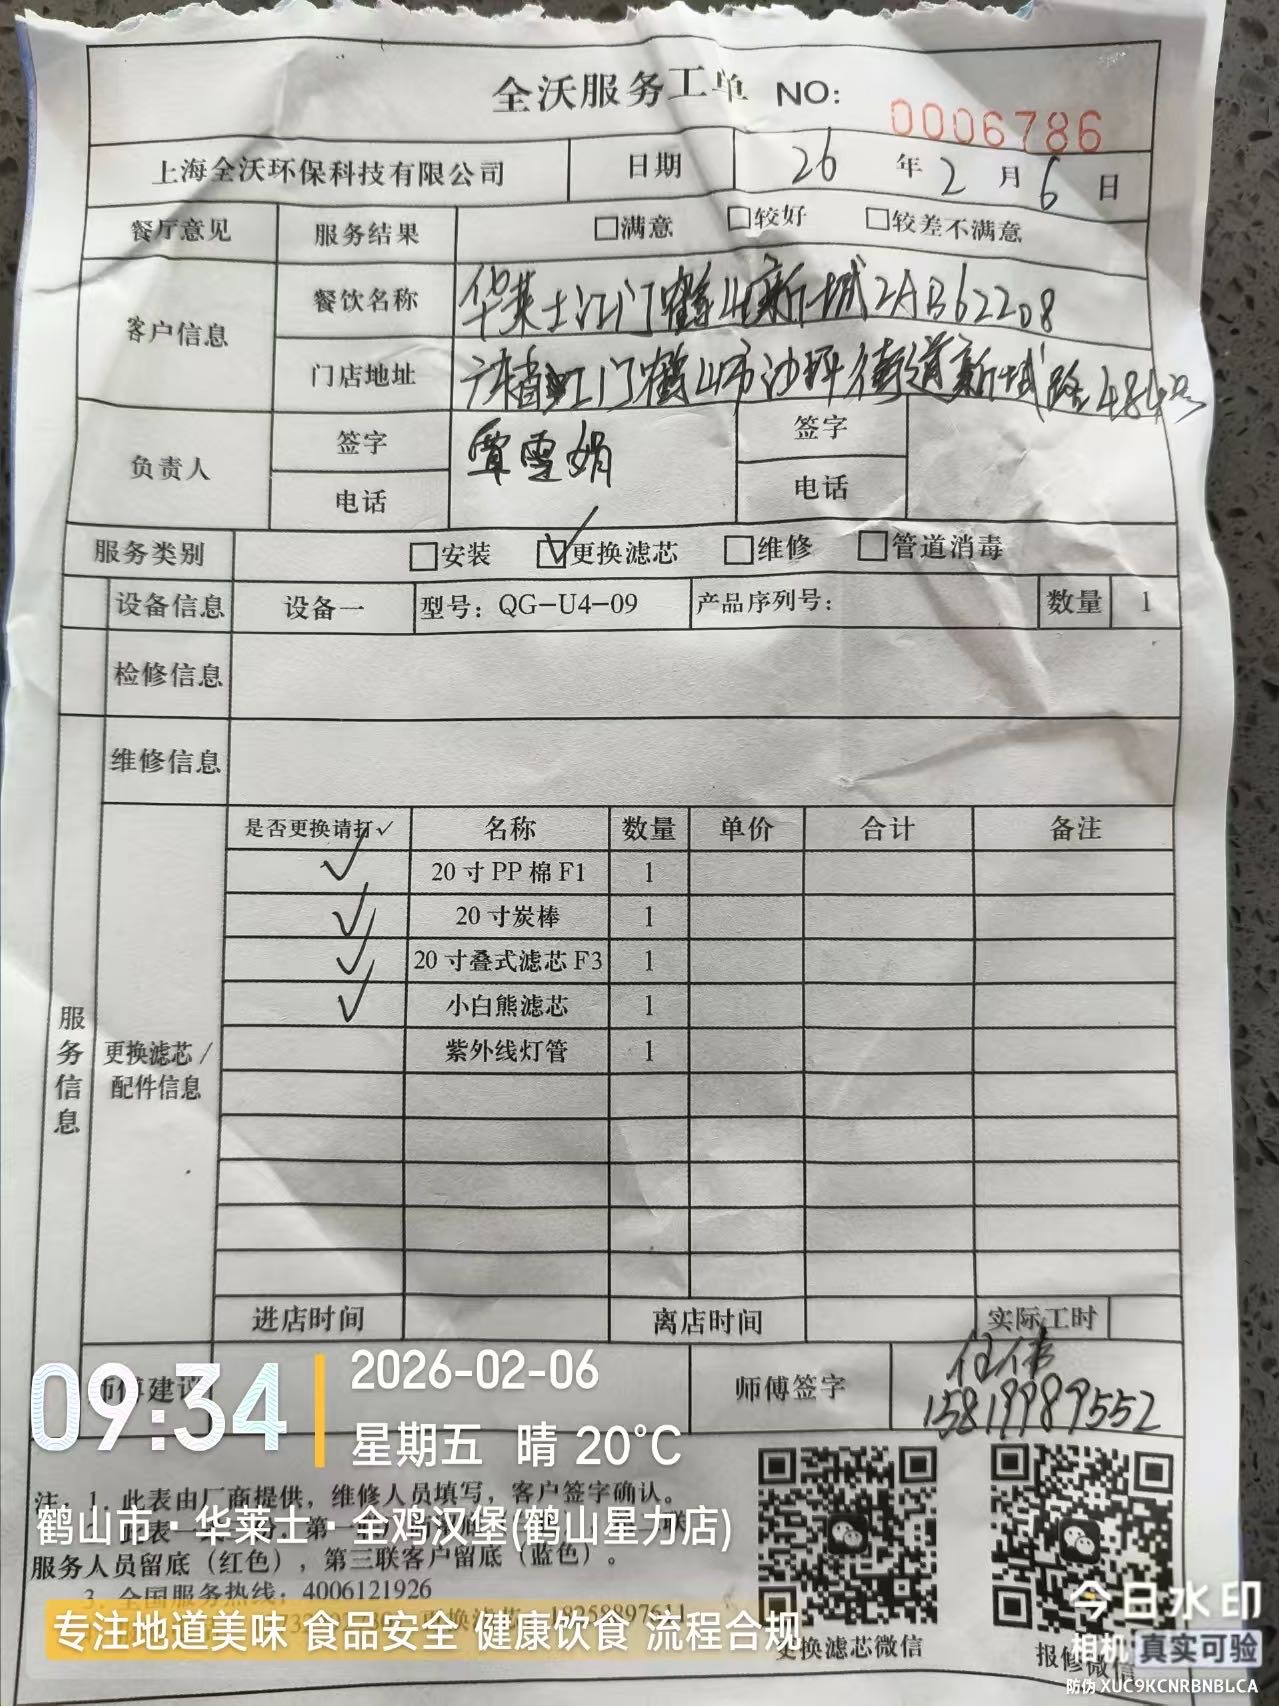 全沃服务工单 NO: 0006786
上海全沃环保科技有限公司 日期 26 年 2 月 6 日
餐厅意见 服务结果 □满意 □较好 □较差不满意
客户信息 餐饮名称 华莱士江门鹤山新城2AB62208
门店地址 广东省江门鹤山市沙坪街道新城路484号
负责人 签字 覃雪娟 签字
电话 电话
服务类别 □安装 ☑更换滤芯 □维修 □管道消毒
设备信息 设备一 型号：QG-U4-09 产品序列号： 数量 1
检修信息
维修信息
服务信息
更换滤芯/
配件信息
是否更换请打✓ 名称 数量 单价 合计 备注
✓ 20寸PP棉F1 1
✓ 20寸炭棒 1
✓ 20寸叠式滤芯F3 1
✓ 小白熊滤芯 1
紫外线灯管 1
进店时间 离店时间 实际工时
师傅建议 师傅签字 任伟
15819989552
09:34 2026-02-06
星期五 晴 20°C
注：1. 此表由厂商提供，维修人员填写，客户签字确认。
鹤山市·华莱士·全鸡汉堡(鹤山星力店)
服务人员留底（红色），第三联客户留底（蓝色）。
3. 全国服务热线：4006121926
更换滤芯 18258897611
专注地道美味 食品安全 健康饮食 流程合规
更换滤芯微信
报修微信
今日水印
相机 真实可验
防伪 XUC9KCNRBNBLCA